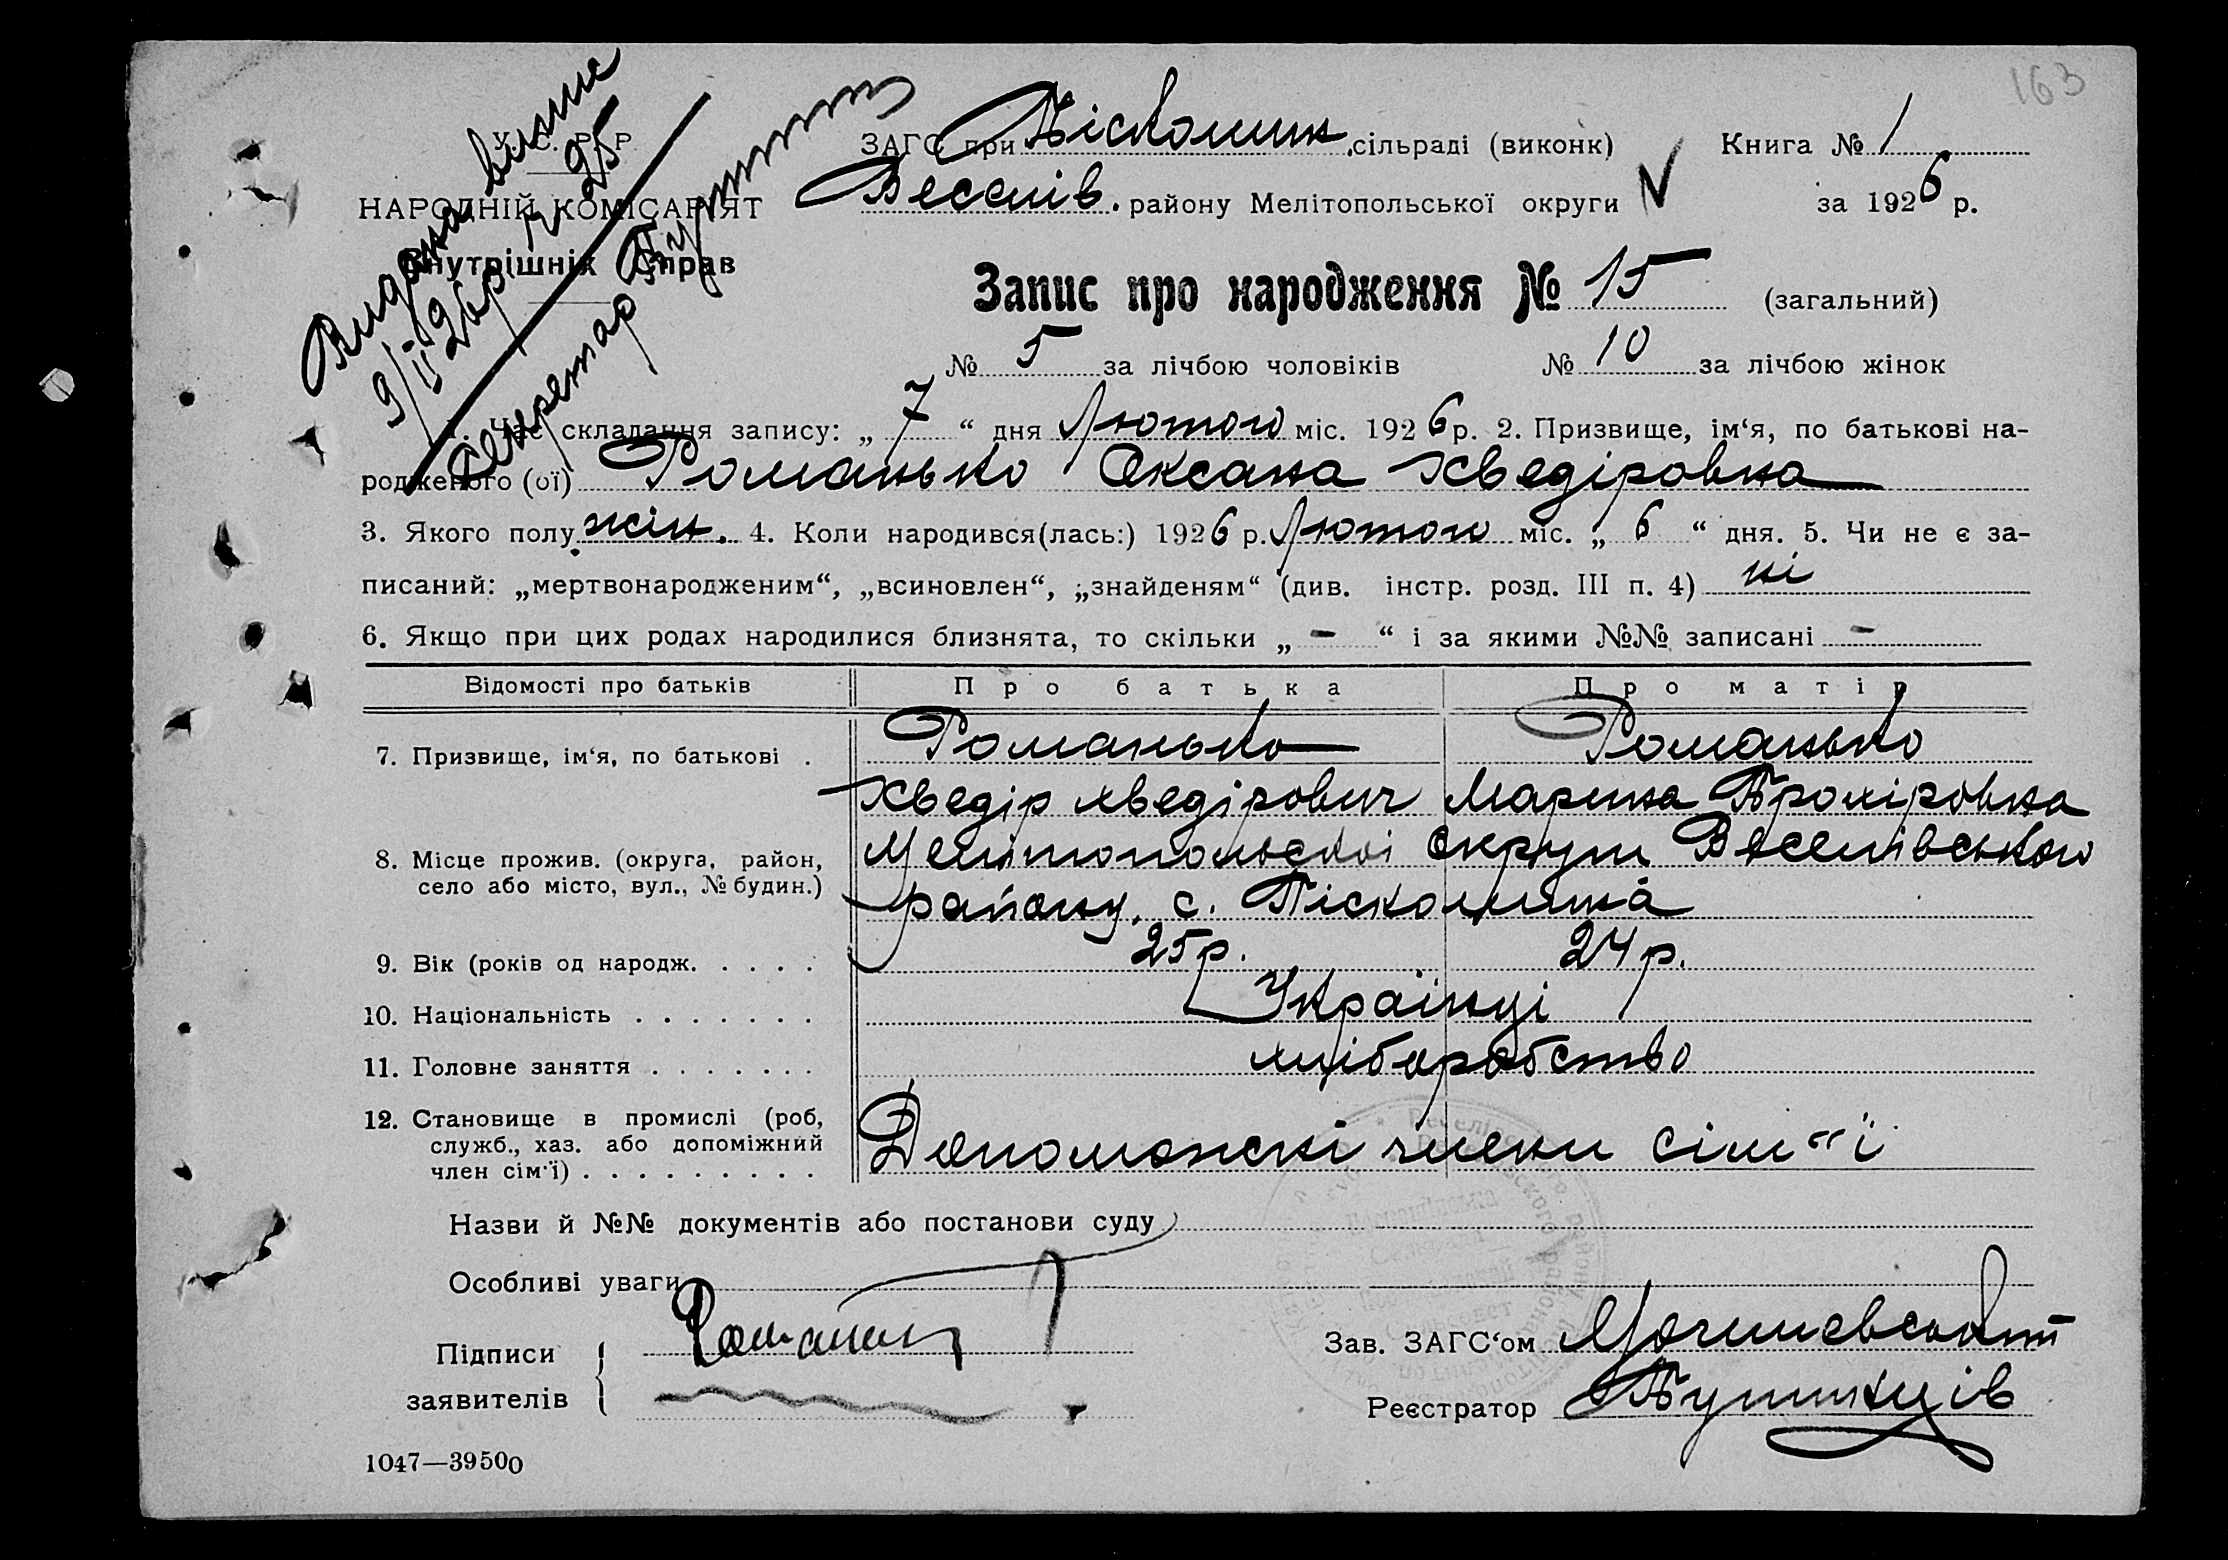 163
У. С. Р. Р.
НАРОДНІЙ КОМІСАРІЯТ
Внутрішніх Справ
Видана виписъ
9/ІІ 26р № 25
Секретар
ЗАГС при Пісколин. сільраді (виконк) Книга № 1
Веселів. району Мелітопольської округи V за 1926 р.
Запис про народження № 15 (загальний)
№ 5 за лічбою чоловіків № 10 за лічбою жінок
1. Час складання запису: „ 7 “ дня Лютого міс. 1926 р. 2. Призвище, ім‘я, по батькові на-
родженого (ої) Романько Оксана Хведіровна
3. Якого полу жін. 4. Коли народився(лась:) 1926 р. Лютого міс. „ 6 “ дня. 5. Чи не є за-
писаний: „мертвонародженим“, „всиновлен“, „знайденям“ (див. інстр. розд. III п. 4) ні
6. Якщо при цих родах народилися близнята, то скільки „ - “ і за якими №№ записані -
Відомості про батьків Про батька Про матір
7. Призвище, ім‘я, по батькові . Романько Романько
Хведір Хведірович Марина Прохіровна
8. Місце прожив. (округа, район, Мелітопольскої Округи Веселівського
село або місто, вул., № будин.) району, с. Пісколина
9. Вік (років од народж. . . . . 25р. 24р.
10. Національність . . . . . . . Українці
11. Головне заняття . . . . . . . хліборобство
12. Становище в промислі (роб, служб., хаз. або допоміжний член сім‘ї) . . . . . . . . . Допоможскі члени сім"ї
Назви й №№ документів або постанови суду
Особливі уваги
Підписи
заявителів
Зав. ЗАГС‘ом
Реєстратор
1047—39500